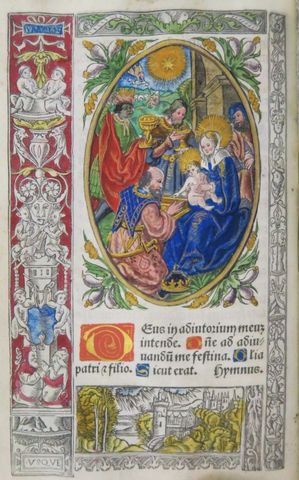 Deus in adiutorium meuz
intende. Dñe ad adiu-
uandū me festina. Glia
patri ⁊ filio. Sicut erat. Hymnus.